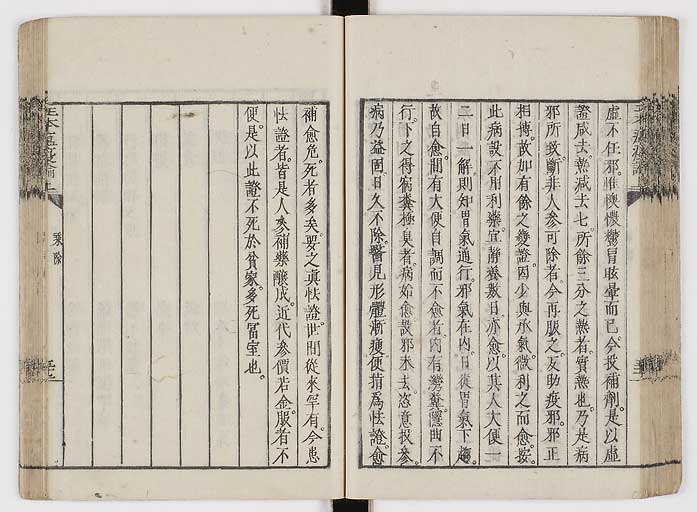 虛不任邪。惟懊憹鬱冒眩暈而已。今投補劑。是以虛
證減去。熱減去七。所餘三分之熱者。實熱也。乃是病
邪所致。斷非人參可除者。今再服之。反助疫邪。邪正
相搏。故加有餘之變證。因少與承氣。微利之而愈。按
此病設不用利藥。宜靜養數日亦愈。以其人大便一
二日一解。則知胃氣通行。邪氣在內。日從胃氣下趨。
故自愈。間有大便自調而不愈者。內有灣糞。隱曲不
行。下之得宿糞極臭者。病始愈。設邪未去。恣意投參。
病乃益固。日久不除。醫見形體漸瘦。便指為怯證。愈
補愈危。死者多矣。要之真怯證。世間從來罕有。今患
怯證者。皆是人參補藥釀成。近代參價若金。服者不
便。是以此證不死於貧家。多死富室也。
乘除